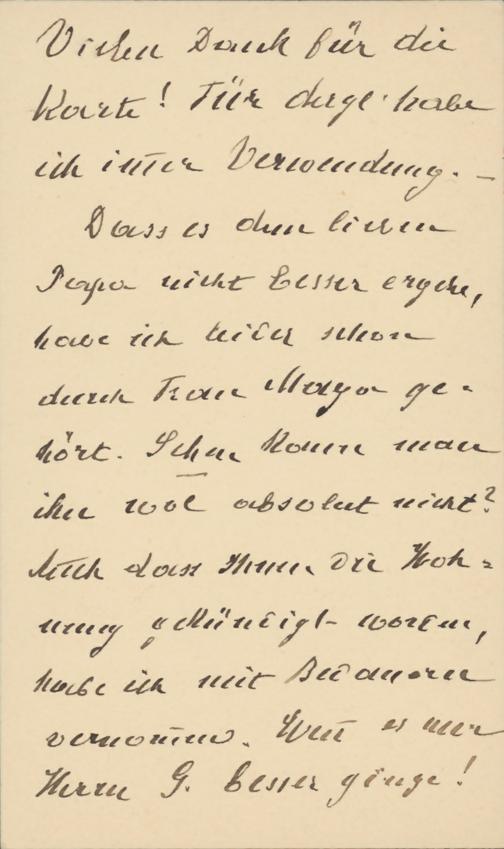 Vielen Dank für die
Karte! Für dergl. habe
ich immer Verwendung. —
Dass es dem lieben
Papa nicht besser ergehe,
habe ich leider schon
durch Frau Maya ge-
hört. Sehen kann man
ihn wol absolut nicht?
Auch dass Ihnen die Woh-
nung gekündigt worden,
habe ich mit Bedauern
vernommen. Wenn es nur
Herrn G. besser ginge!